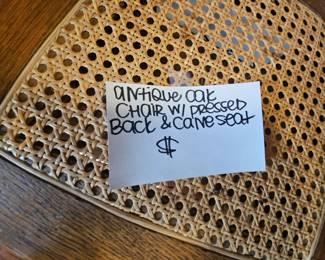 ANTIQUE OAK
CHAIR W/ PRESSED
BACK & CANE SEAT
$